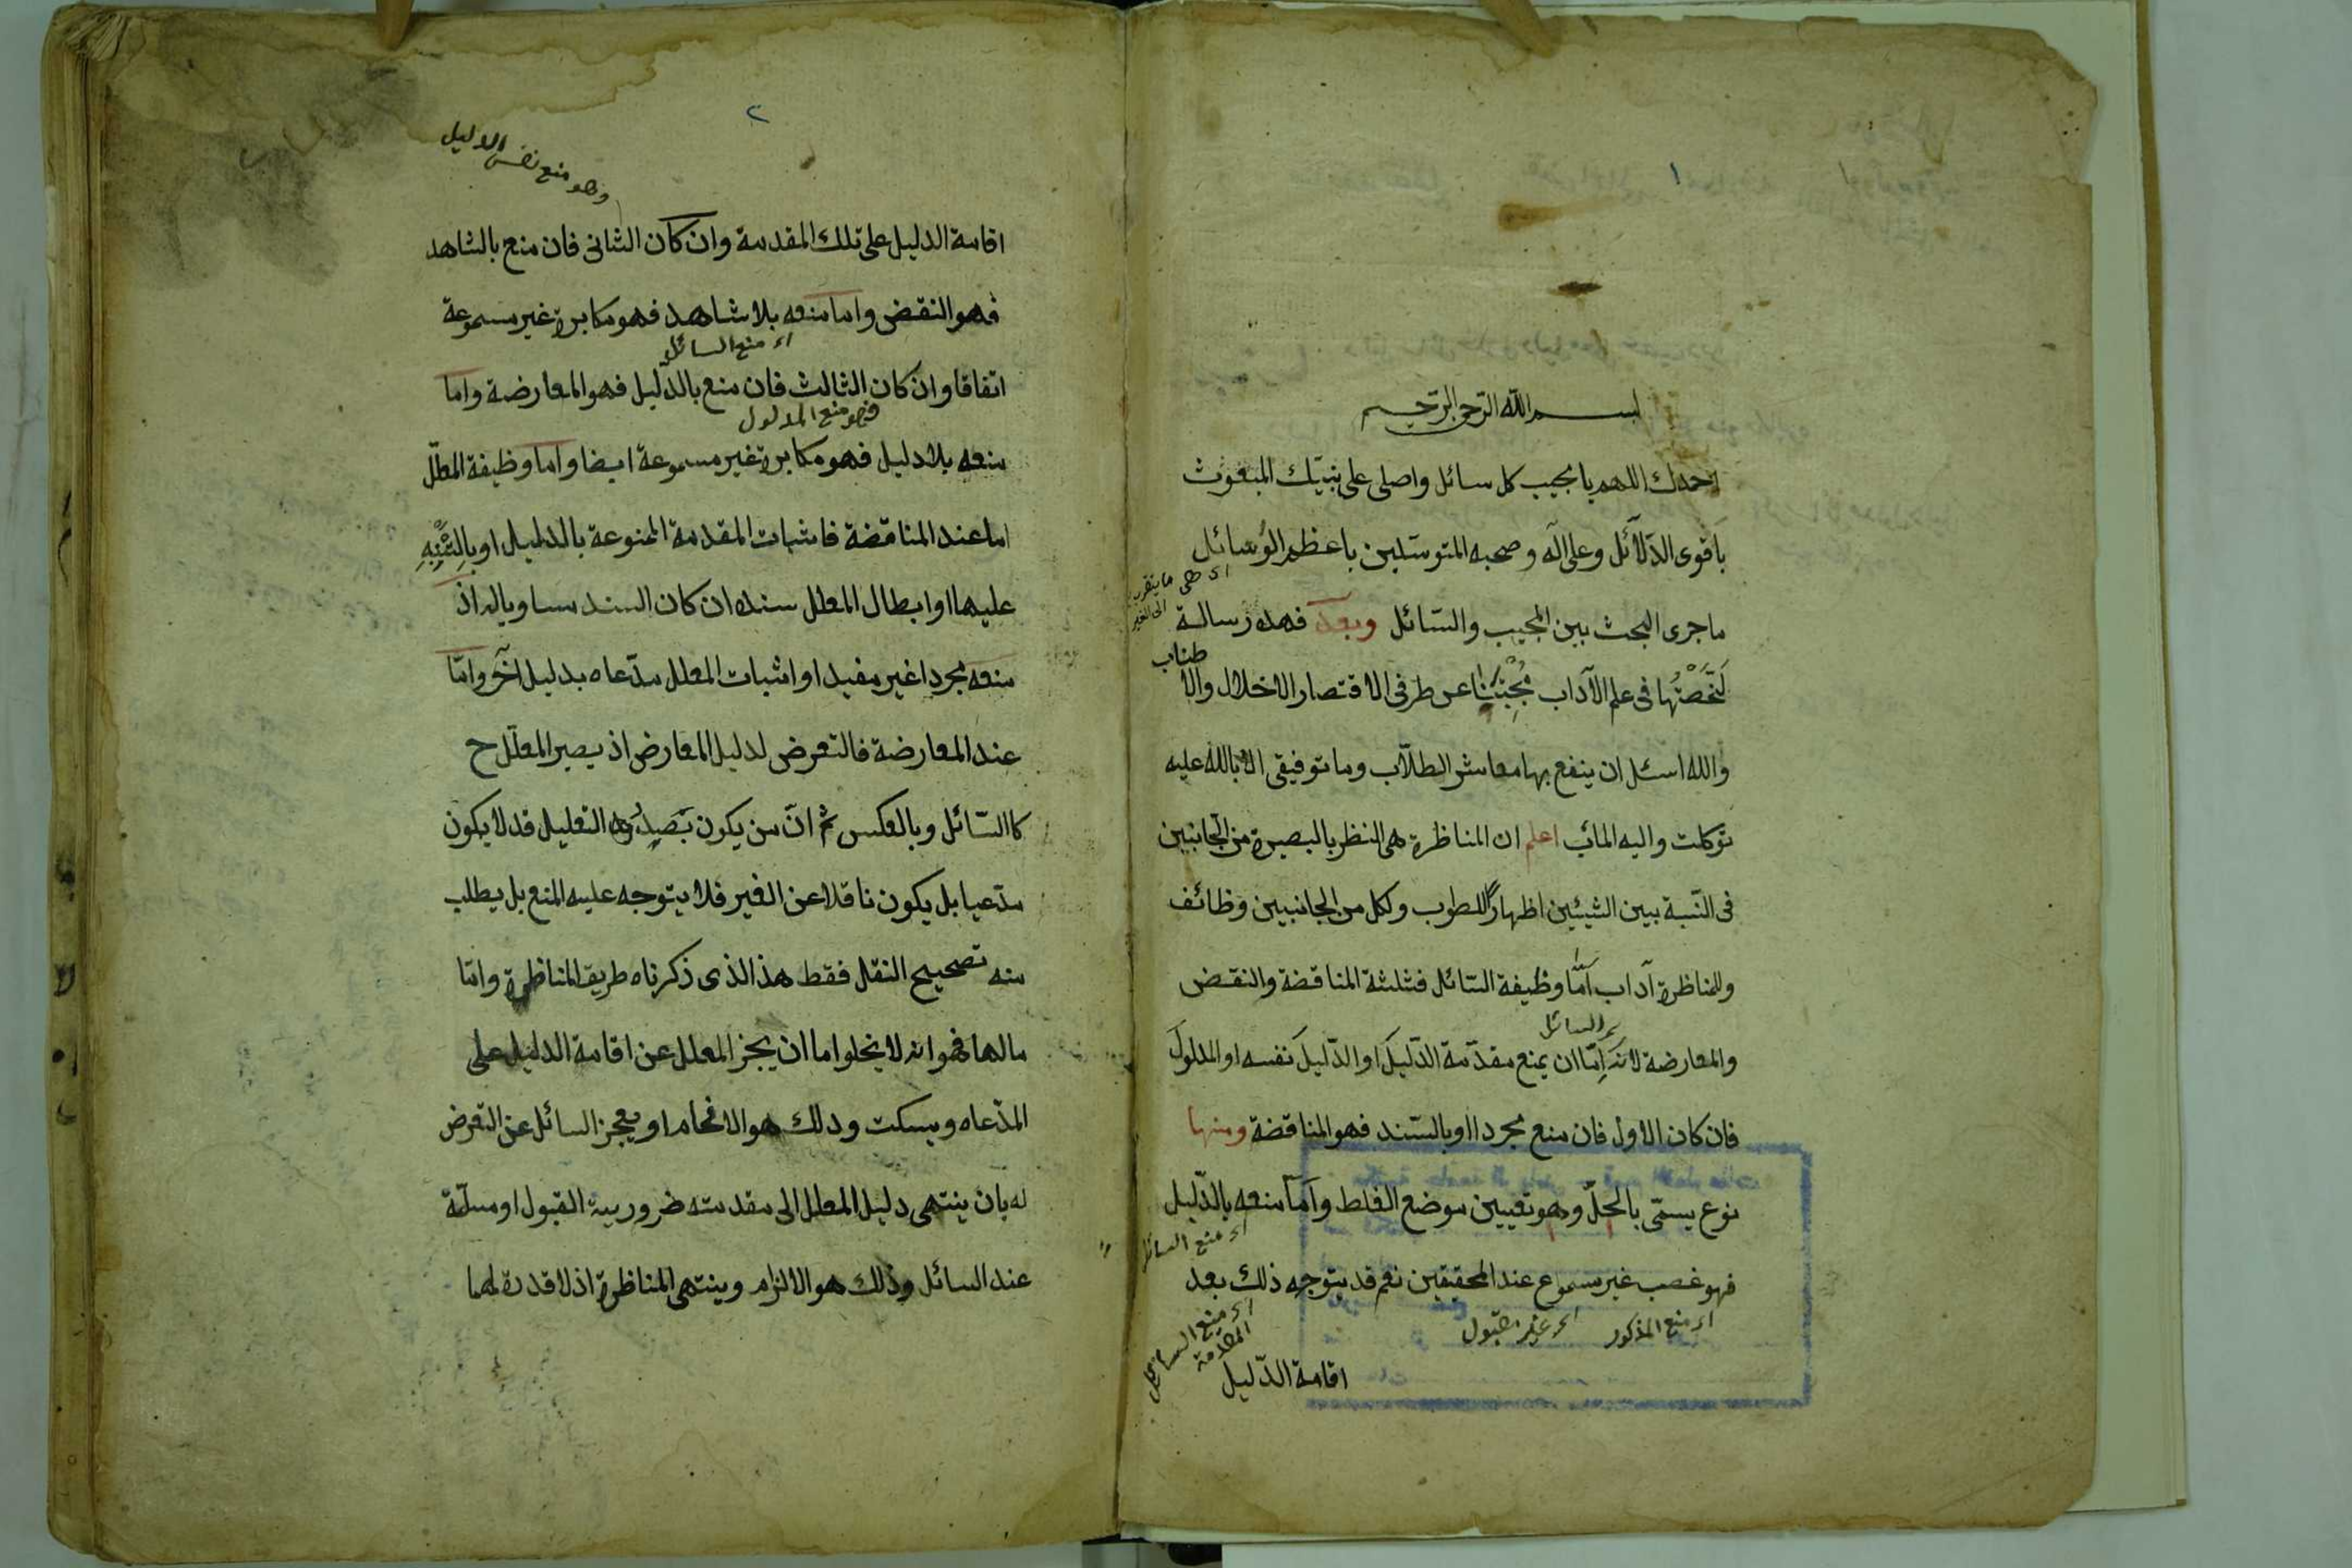 ١
بسم الله الرحمن الرحيم
احمدك اللهم يا مجيب كل سائل واصلى على نبيك المبعوث
باقوى الدلائل وعلى اله وصحبه المتوسلين باعظم الوسائل
اى هى ما يتقرب
الى الغير
ما جرى البحث بين المجيب والسائل وبعد فهذه رسالة
لخصتها فى علم الآداب مجتنبا عن طرفى الاقتصار الاخلال والا
طناب
والله اسئل ان ينفع بها معاشر الطلاب وما توفيقى الا بالله عليه
توكلت واليه المآب اعلم ان المناظرة هى النظر بالبصيرة من الجانبين
فى النسبة بين الشيئين اظهارا للصوب ولكل من الجانبين وظائف
وللمناظرة آداب اما وظيفة السائل فثلثة المناقضة والنقض
السائل
والمعارضة لانه اما ان يمنع مقدمة الدليل او الدليل نفسه او المدلول
فان كان الاول فان منع مجردا او بالسند فهو المناقضة ومنها
نوع يسمى بالحل وهو تعيين موضع الغلط واما منعه بالدليل
اى منع السائل
فهو غصب غير مسموع عند المحققين نعم قد يتوجه ذلك بعد
اى منع المذكور
اى غير مقبول
اى منع السائل
المقدمة
اقامة الدليل
٢
وهو منع نفس الدليل
اقامة الدليل على تلك المقدمة وان كان الثانى فان منع بالشاهد
فهو النقض واما منعه بلا شاهد فهو مكابرة غير مسموعة
اى منع السائل
اتفاقا وان كان الثالث فان منع بالدليل فهو المعارضة واما
فهو منع المدلول
منعه بلا دليل فهو مكابرة غير مسموعة ايضا واما وظيفة المعلل
اما عند المناقضة فاثبات المقدمة الممنوعة بالدليل او بالتنبيه
عليها او ابطال المعلل سنده ان كان السند مساويا له اذ
منعه مجردا غير مفيد او اثبات المعلل مدعاه بدليل آخر واما
عند المعارضة فالتعرض لدليل المعارض اذ يصير المعلل ح
كالسائل وبالعكس ثم ان من يكون بصدد التعليل قد لا يكون
مدعيا بل يكون ناقلا عن الغير فلا يتوجه عليه المنع بل يطلب
منه تصحيح النقل فقط هذا الذى ذكرناه طريق المناظرة واما
مالها فهو انه لا يخلوا اما ان يعجز المعلل عن اقامة الدليل على
المدعاه ويسكت وذلك هو الافحام او يعجز السائل عن التعرض
له بان ينتهى دليل المعلل الى مقدمته ضرورية القبول او مسلمة
عند السائل وذلك هو الالزام وينتهى المناظرة اذ لا قدرة لهما